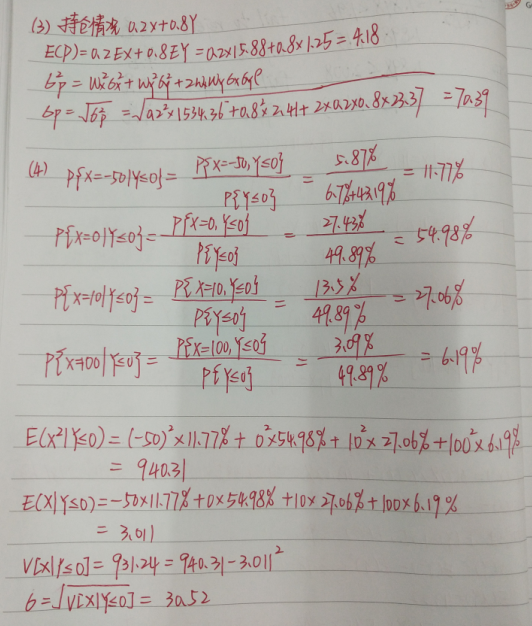 (3) 持仓情况 0.2X+0.8Y
E(P)=0.2EX+0.8EY=0.2×15.88+0.8×1.25=4.18
σp²=Wx²σx²+Wy²σy²+2WxWyσxσyρ
σp=√σp²=√0.2²×1534.36+0.8²×2.41+2×0.2×0.8×23.37=70.39
(4) P{X=-50|Y≤0}=P{X=-50,Y≤0}/P{Y≤0}=5.87%/6.7%+43.19%=11.77%
P{X=0|Y≤0}=P{X=0,Y≤0}/P{Y≤0}=27.43%/49.89%=54.98%
P{X=10|Y≤0}=P{X=10,Y≤0}/P{Y≤0}=13.5%/49.89%=27.06%
P{X=100|Y≤0}=P{X=100,Y≤0}/P{Y≤0}=3.09%/49.89%=6.19%
E(X²|Y≤0)=(-50)²×11.77%+0²×54.98%+10²×27.06%+100²×6.19%
=940.31
E(X|Y≤0)=-50×11.77%+0×54.98%+10×27.06%+100×6.19%
=3.011
V[X|Y≤0]=931.24=940.31-3.011²
σ=√V[X|Y≤0]=30.52